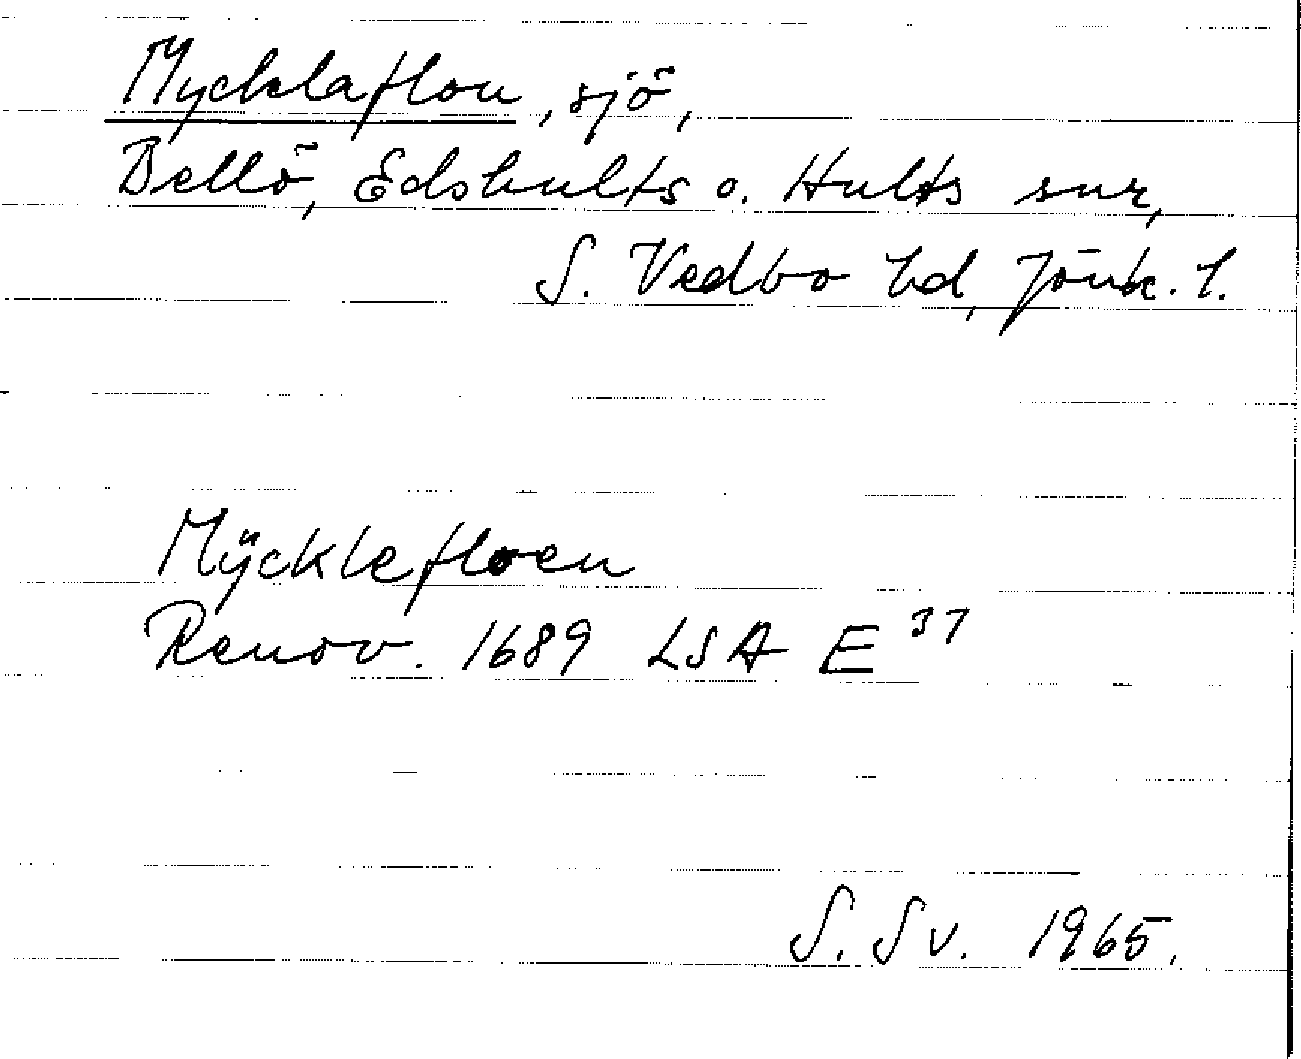 Mycklaflon, sjö,
Bellö, Edshults o. Hults snr,
S. Vedbo hd, Jönk. l.
Mÿcklefloen
Renov. 1689 LSA E 37
S. Sv. 1965.